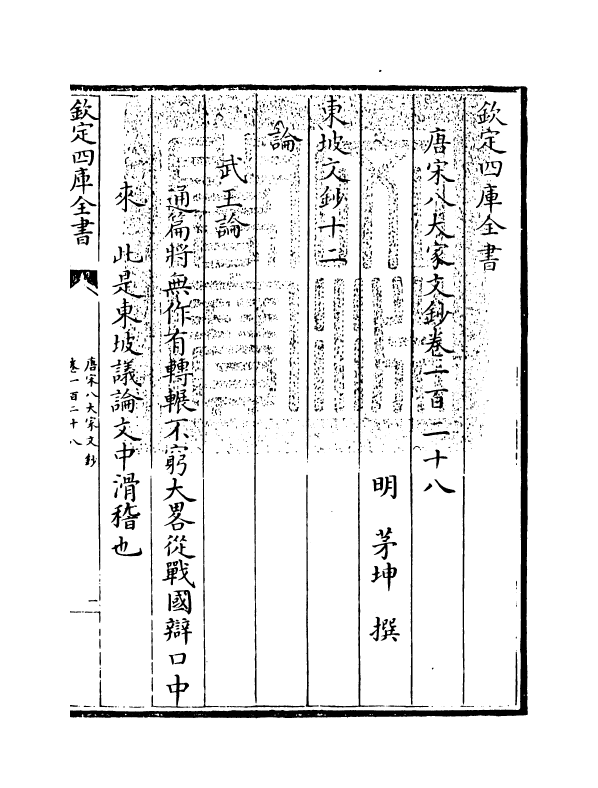 欽定四庫全書
唐宋八大家文鈔卷一百二十八
明 茅坤 撰
東坡文鈔十二
論
武王論
通篇將無作有轉輾不窮大畧從戰國辯口中
來 此是東坡議論文中滑稽也
欽定四庫全書
唐宋八大家文鈔
卷一百二十八
一